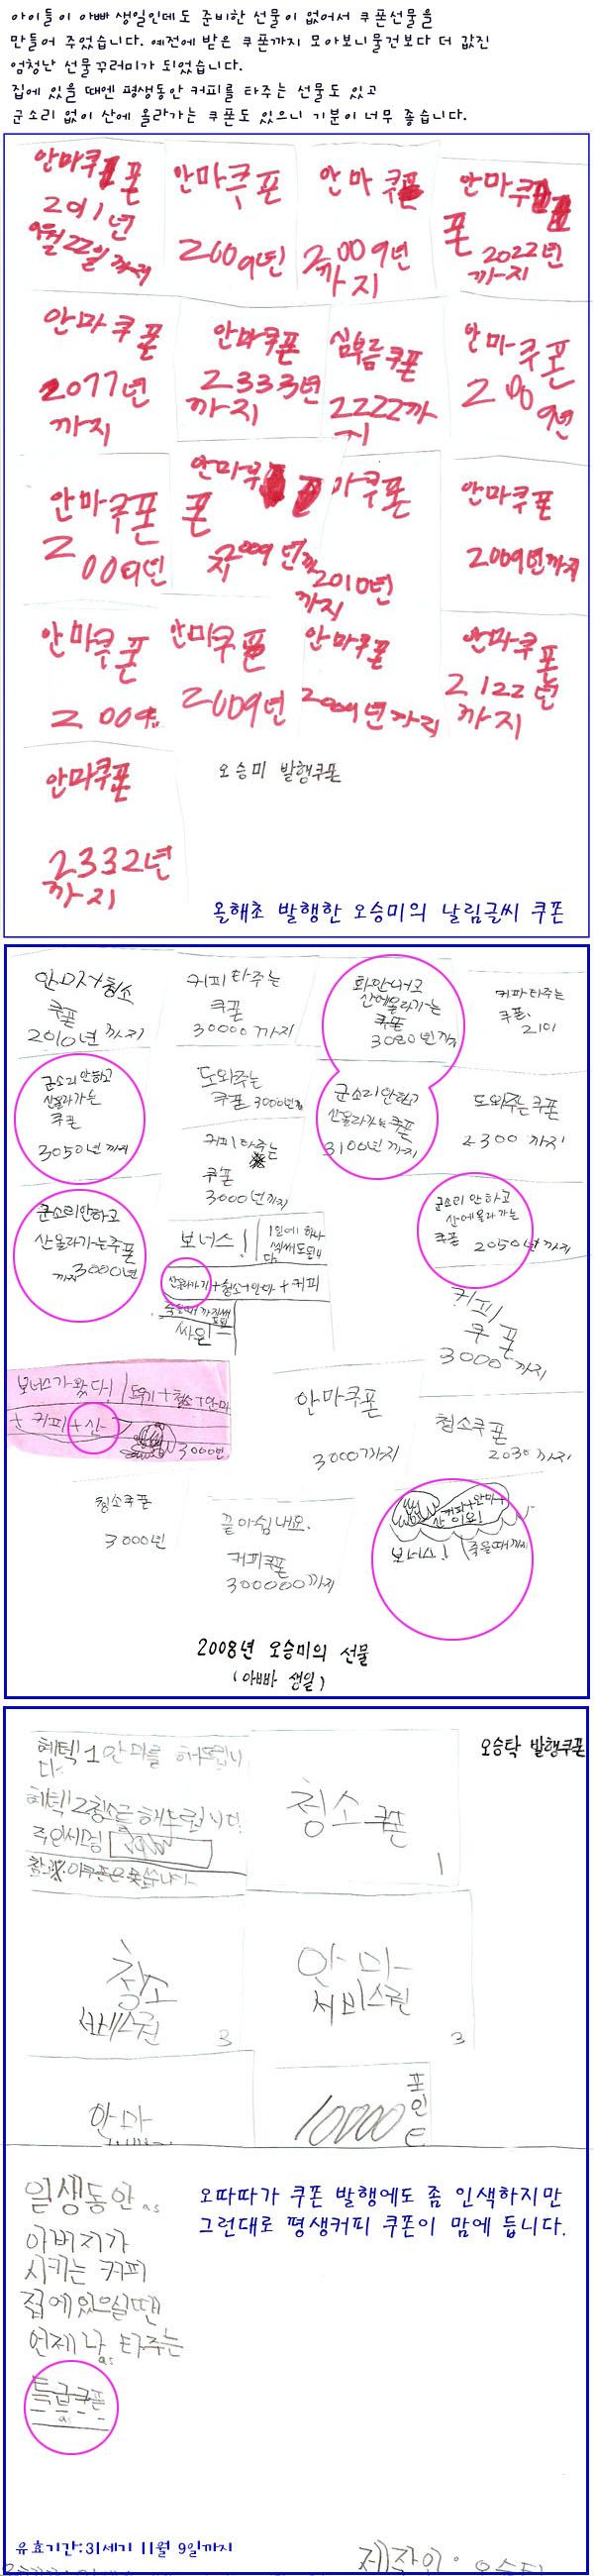 아이들이 아빠 생일인데도 준비한 선물이 없어서 쿠폰선물을
만들어 주었습니다. 예전에 받은 쿠폰까지 모아보니물건보다 더 값진
엄청난 선물꾸러미가 되었습니다.
집에 있을 때엔 평생동안 커피를 타주는 선물도 있고
군소리 없이 산에 올라가는 쿠폰도 있으니 기분이 너무 좋습니다.
안마쿠 폰
안마쿠폰
2009년
안마쿠
2009년
까지
안마쿠
폰 2022년
까지
안마쿠폰
2077년
까지
안마쿠폰
2333년
까지
심부름쿠폰
2222까
지
안마쿠폰
2009년
안마쿠폰
2009년
안마쿠
폰
2009년까
지
마쿠폰
2010년
까지
안마쿠폰
2009년까지
안마쿠폰
2009
안마쿠폰
2009년
안마쿠폰
2009년까지
안마쿠폰
2122년
까지
안마쿠폰
2332년
까지
오승미 발행쿠폰
올해초 발행한 오승미의 날림글씨 쿠폰
안마+청소
쿠폰
2010년까지
커피타주는
쿠폰
30000까지
화안내고
산에올라가는
쿠폰
커피타주는
쿠폰.
2101
군소리안하고
산올라가는
쿠폰
3050년까지
도와주는
쿠폰 3000년
군소리안하고
산올라가는쿠폰
3100년까지
도와주는쿠폰
2300까지
커피타주는
쿠폰
3000년까지
군소리안하고
산올라가는쿠폰
3000년
까지
보너스!
산올라가기+청소+안마+커피
군소리안하고
산에올라가는
쿠폰 2050년까지
커피
쿠폰
3000까지
보너스가왔다!
+커피+산
3000년
안마쿠폰
3000까지
청소쿠폰
2030까지
청소쿠폰
3000년
끝아쉽네요.
커피쿠폰
300000까지
커피+안마+
보너스! 죽을때까지
2008년 오승미의 선물
(아빠 생일)
오승탁 발행쿠폰
혜텍1안마를 해드립니
다.
혜텍2청소를해드립니다.
청소쿠폰
1
청소
3
안마
서비스권
3
안마
10000포인트
일생동안
아버지가
시키는 커피
집에있으실땐
언제나 타주는
특급쿠폰
오따따가 쿠폰 발행에도 좀 인색하지만
그런대로 평생커피 쿠폰이 맘에 듭니다.
유효기간:31세기 11월 9일까지